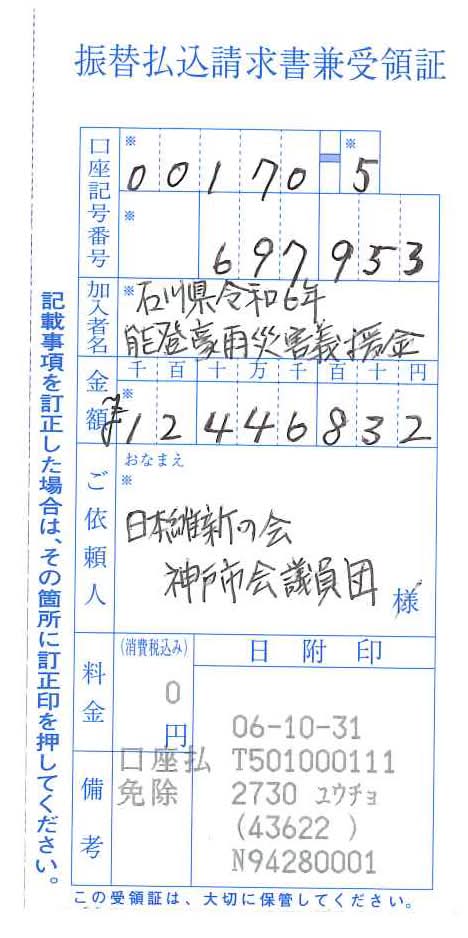 振替払込請求書兼受領証
口座記号番号
※
※
00170-5
※
697953
加入者名
※
石川県令和6年
能登豪雨災害義援金
金額
千百十万千百十円
※
¥12446832
ご依頼人
おなまえ
※
日本維新の会
神戸市会議員団 様
料金
(消費税込み)
0
円
備考
口座払
免除
日附印
06-10-31
T501000111
2730 ユウチョ
(43622 )
N94280001
この受領証は、大切に保管してください。
記載事項を訂正した場合は、その箇所に訂正印を押してください。